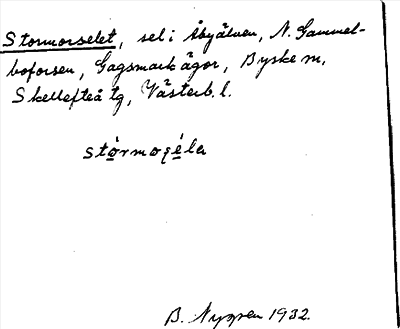 Stormorselet, sel i Åbyälven, N. Gammel-
boforsen, Gagsmark ägor, Byske sn,
Skellefteå tg, Västerb. l.
B. Nygren 1932.